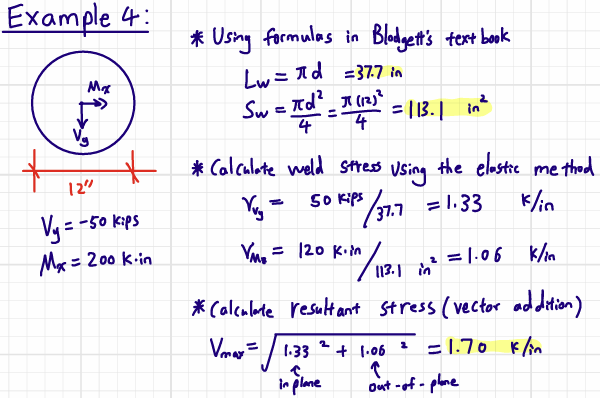 Example 4:
Mx
Vy
12"
Vy = -50 kips
Mx = 200 k·in
* Using formulas in Blodgett's textbook
Lw = πd = 37.7 in
Sw = πd²/4 = π(12)²/4 = 113.1 in²
* Calculate weld stress using the elastic method
rVy = 50 kips/37.7 = 1.33 k/in
rMx = 120 k·in/113.1 in² = 1.06 k/in
* Calculate resultant stress (vector addition)
Vmax = √1.33² + 1.06² = 1.70 k/in
in plane
out-of-plane